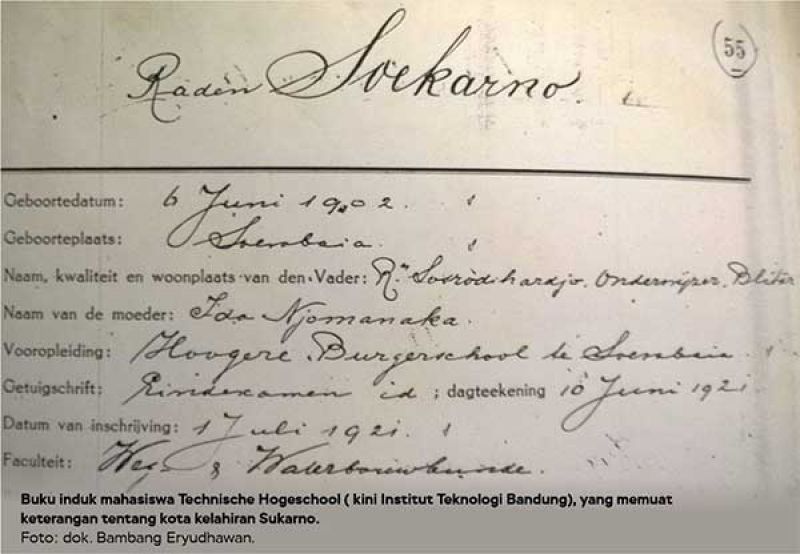 55
Raden Soekarno.
Geboortedatum: 6 Juni 1902.
Geboorteplaats: Soerabaia.
Naam, kwaliteit en woonplaats van den Vader: Rn Sosrodihardjo. Onderwijzer. Blitar
Naam van de moeder: Ida Njomanaka.
Vooropleiding: Hoogere Burgerschool te Soerabaia.
Getuigschrift: Eindexamen id ; dagteekening 10 Juni 1921
Datum van inschrijving: 1 Juli 1921.
Faculteit: Weg & Waterbouwkunde.
Buku induk mahasiswa Technische Hogeschool ( kini Institut Teknologi Bandung), yang memuat
keterangan tentang kota kelahiran Sukarno.
Foto: dok. Bambang Eryudhawan.